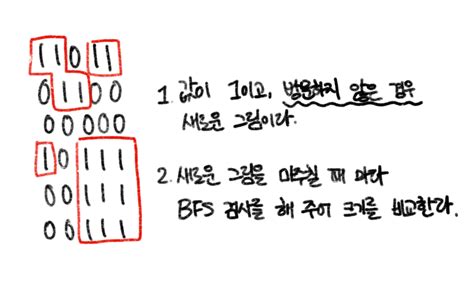 11011
01100
00000
10111
00111
00111
1. 값이 1이고, 방문하지 않은 경우
새로운 그림이다.
2. 새로운 그림을 마주칠 때 마다
BFS 검사를 해 주어 크기를 비교한다.